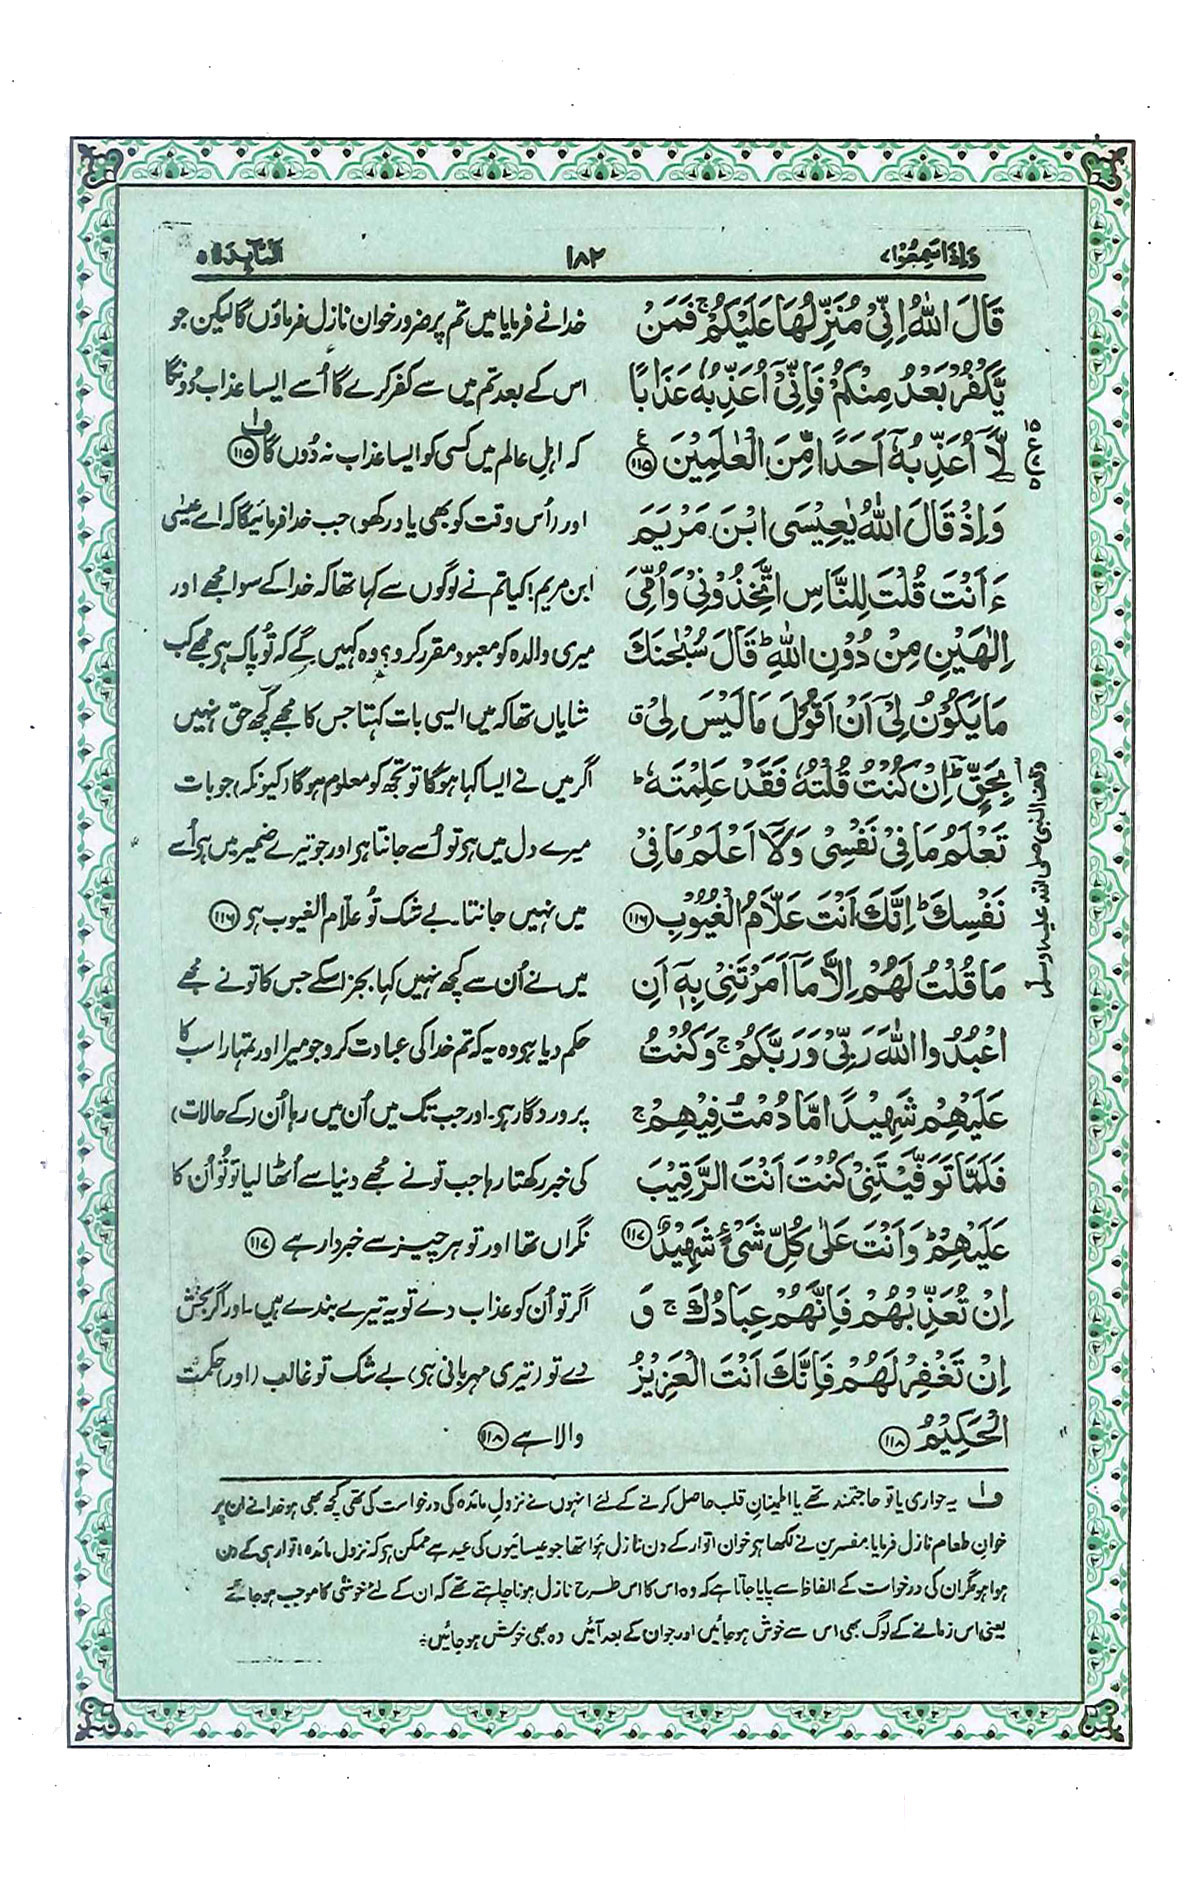 وَاِذَا سَمِعُوْا ٧
١٨٢
الْمَآئِدَة ٥
قَالَ اللّٰهُ اِنِّىْ مُنَزِّلُهَا عَلَيْكُمْ ۚ فَمَنْ
يَّكْفُرْ بَعْدُ مِنْكُمْ فَاِنِّىْٓ اُعَذِّبُهٗ عَذَابًا
لَّآ اُعَذِّبُهٗٓ اَحَدًا مِّنَ الْعٰلَمِيْنَ ؑ ١١٥
وَاِذْ قَالَ اللّٰهُ يٰعِيْسَى ابْنَ مَرْيَمَ
ءَاَنْتَ قُلْتَ لِلنَّاسِ اتَّخِذُوْنِىْ وَاُمِّىَ
اِلٰهَيْنِ مِنْ دُوْنِ اللّٰهِ ؕ قَالَ سُبْحٰنَكَ
مَا يَكُوْنُ لِىْٓ اَنْ اَقُوْلَ مَا لَيْسَ لِىْ ق
بِحَقٍّ ؕ اِنْ كُنْتُ قُلْتُهٗ فَقَدْ عَلِمْتَهٗ ؕ
تَعْلَمُ مَا فِىْ نَفْسِىْ وَلَآ اَعْلَمُ مَا فِىْ
نَفْسِكَ ؕ اِنَّكَ اَنْتَ عَلَّامُ الْغُيُوْبِ ١١٦
مَا قُلْتُ لَهُمْ اِلَّا مَآ اَمَرْتَنِىْ بِهٖٓ اَنِ
اعْبُدُوا اللّٰهَ رَبِّىْ وَرَبَّكُمْ ۚ وَكُنْتُ
عَلَيْهِمْ شَهِيْدًا مَّا دُمْتُ فِيْهِمْ ۚ
فَلَمَّا تَوَفَّيْتَنِىْ كُنْتَ اَنْتَ الرَّقِيْبَ
عَلَيْهِمْ ؕ وَاَنْتَ عَلٰى كُلِّ شَىْءٍ شَهِيْدٌ ١١٧
اِنْ تُعَذِّبْهُمْ فَاِنَّهُمْ عِبَادُكَ ۚ وَ
اِنْ تَغْفِرْ لَهُمْ فَاِنَّكَ اَنْتَ الْعَزِيْزُ
الْحَكِيْمُ ١١٨
١٥
ع
٥
وقف النبی صلی اللہ علیہ وسلم
خدا نے فرمایا میں تم پر ضرور خوان نازل فرماؤں گا لیکن جو
اس کے بعد تم میں سے کفر کرے گا اُسے ایسا عذاب دُونگا
کہ اہلِ عالم میں کسی کو ایسا عذاب نہ دُوں گا ف۱ ۱۱۵
اور (اُس وقت کو بھی یاد رکھو) جب خدا فرمائیگا کہ اے عیسٰی
ابن مریم! کیا تم نے لوگوں سے کہا تھا کہ خدا کے سوا مجھے اور
میری والدہ کو معبود مقرر کرو؟ وہ کہیں گے کہ تُو پاک ہی مجھے کب
شایاں تھا کہ میں ایسی بات کہتا جس کا مجھے کچھ حق نہیں
اگر میں نے ایسا کہا ہوگا تو تجھ کو معلوم ہوگا (کیونکہ) جو بات
میرے دل میں ہی تو اُسے جانتا ہی اور جو تیرے ضمیر میں ہی اُسے
میں نہیں جانتا۔ بے شک تُو علّام الغیوب ہی ۱۱۶
میں نے اُن سے کچھ نہیں کہا بجز اسکے جس کا تو نے مجھے
حکم دیا ہی وہ یہ کہ تم خدا کی عبادت کرو جو میرا اور تمہارا سب کا
پروردگار ہی۔ اور جب تک میں اُن میں رہا اُن (کے حالات)
کی خبر رکھتا رہا جب تو نے مجھے دنیا سے اُٹھا لیا تو تُو اُن کا
نگراں تھا اور تو ہر چیز سے خبردار ہے ۱۱۷
اگر تو اُن کو عذاب دے تو یہ تیرے بندے ہیں۔ اور اگر بخش
دے تو (تیری مہربانی ہی) بے شک تو غالب (اور) حکمت
والا ہے ۱۱۸
ف۱ یہ حواری یا تو حاجتمند تھے یا اطمینانِ قلب حاصل کرنے کے لئے انہوں نے نزول مائدہ کی درخواست کی تھی کچھ بھی ہو خدا نے ان پر
خوانِ طعام نازل فرمایا۔ مفسرین نے لکھا ہی خوان اتوار کے دن نازل ہُوا تھا جو عیسائیوں کی عید ہے ممکن ہی کہ نزول مائدہ اتوار ہی کے دن
ہوا ہو مگر ان کی درخواست کے الفاظ سے پایا جاتا ہے کہ وہ اس کا اس طرح نازل ہونا چاہتے تھے کہ ان کے لئے خوشی کا موجب ہو جائے
یعنی اس زمانے کے لوگ بھی اس سے خوش ہو جائیں اور جو ان کے بعد آئیں وہ بھی خوش ہو جائیں ؛